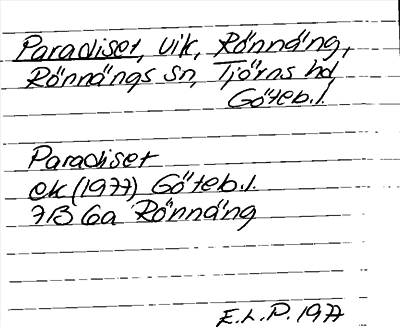 Paradiset, vik, Rönnäng,
Rönnängs sn, Tjörns hd,
Göteb.l.
Paradiset
ek (1977) Göteb.l.
7B 6a Rönnäng
E.L.P. 1977